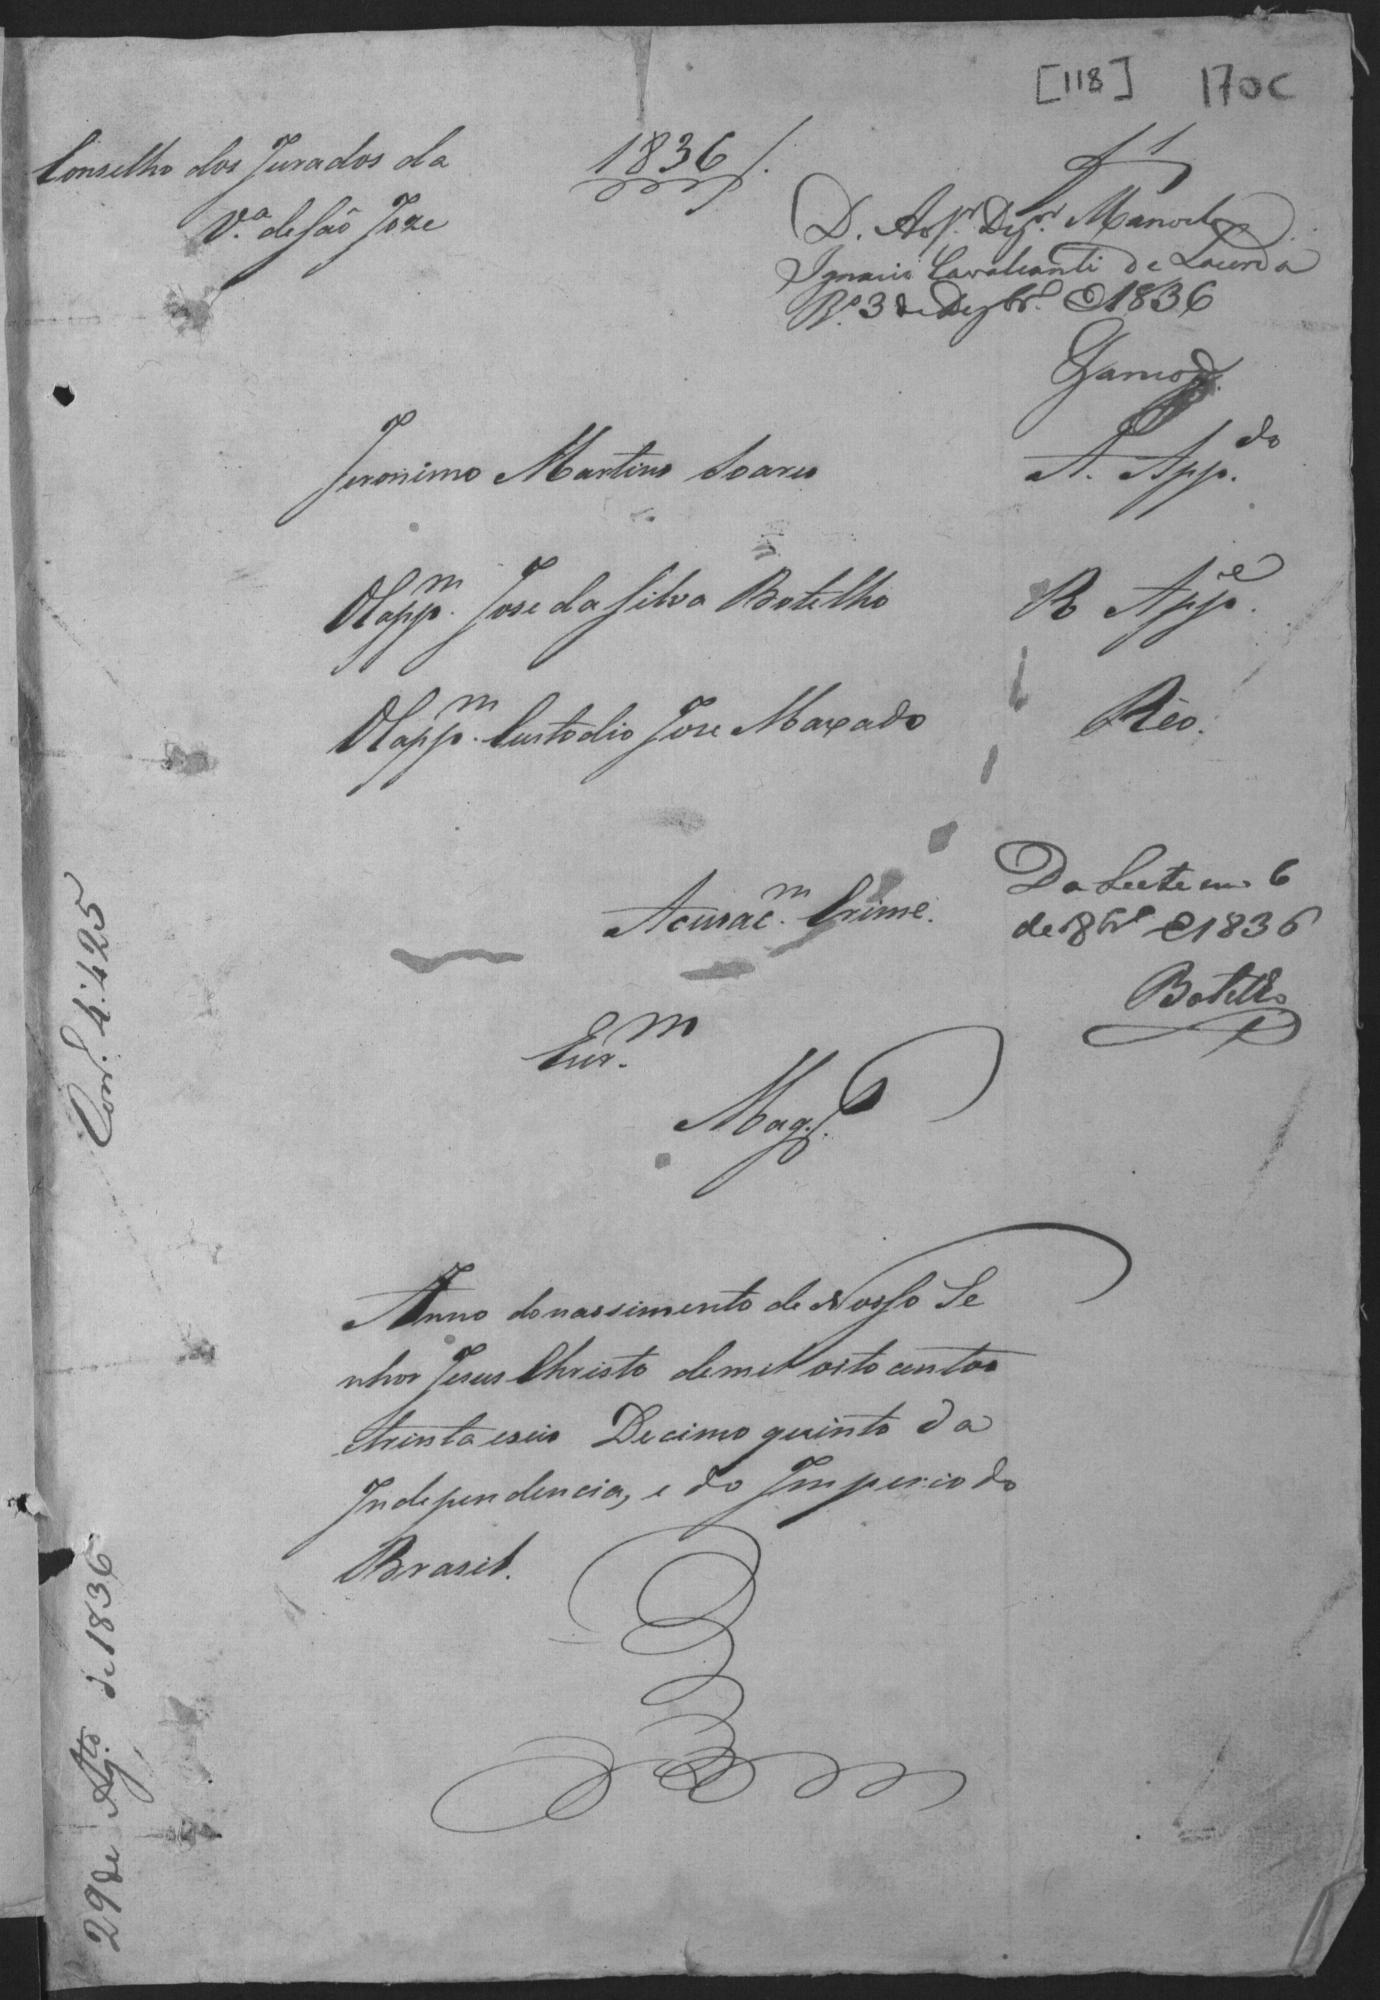 [118] 170C
Conselho dos Jurados da
V.ª de São Joze
1836
D. Ao Sr. Dezr. Manoel
Ignacio Cavalcanti de Lacerda
Rº. 3 de Dezbrº. @ 1836
Jeronimo Martins Soares A. App.do
O Cappm. Jose da Silva Botelho R App.e
O Cappm. Custodio Joze Maxado Réo.
Acusac.m Crime.
Da Secte em 6
de 8brº @ 1836
Botelho
Esr.m
Mag.
Anno do nassimento de Nosso Se
nhor Jesus Christo de mil oito centos
trinta e seis Decimo quinto da
Independencia, e do Imperio do
Brasil.
4:425
29 de Agto. de 1836